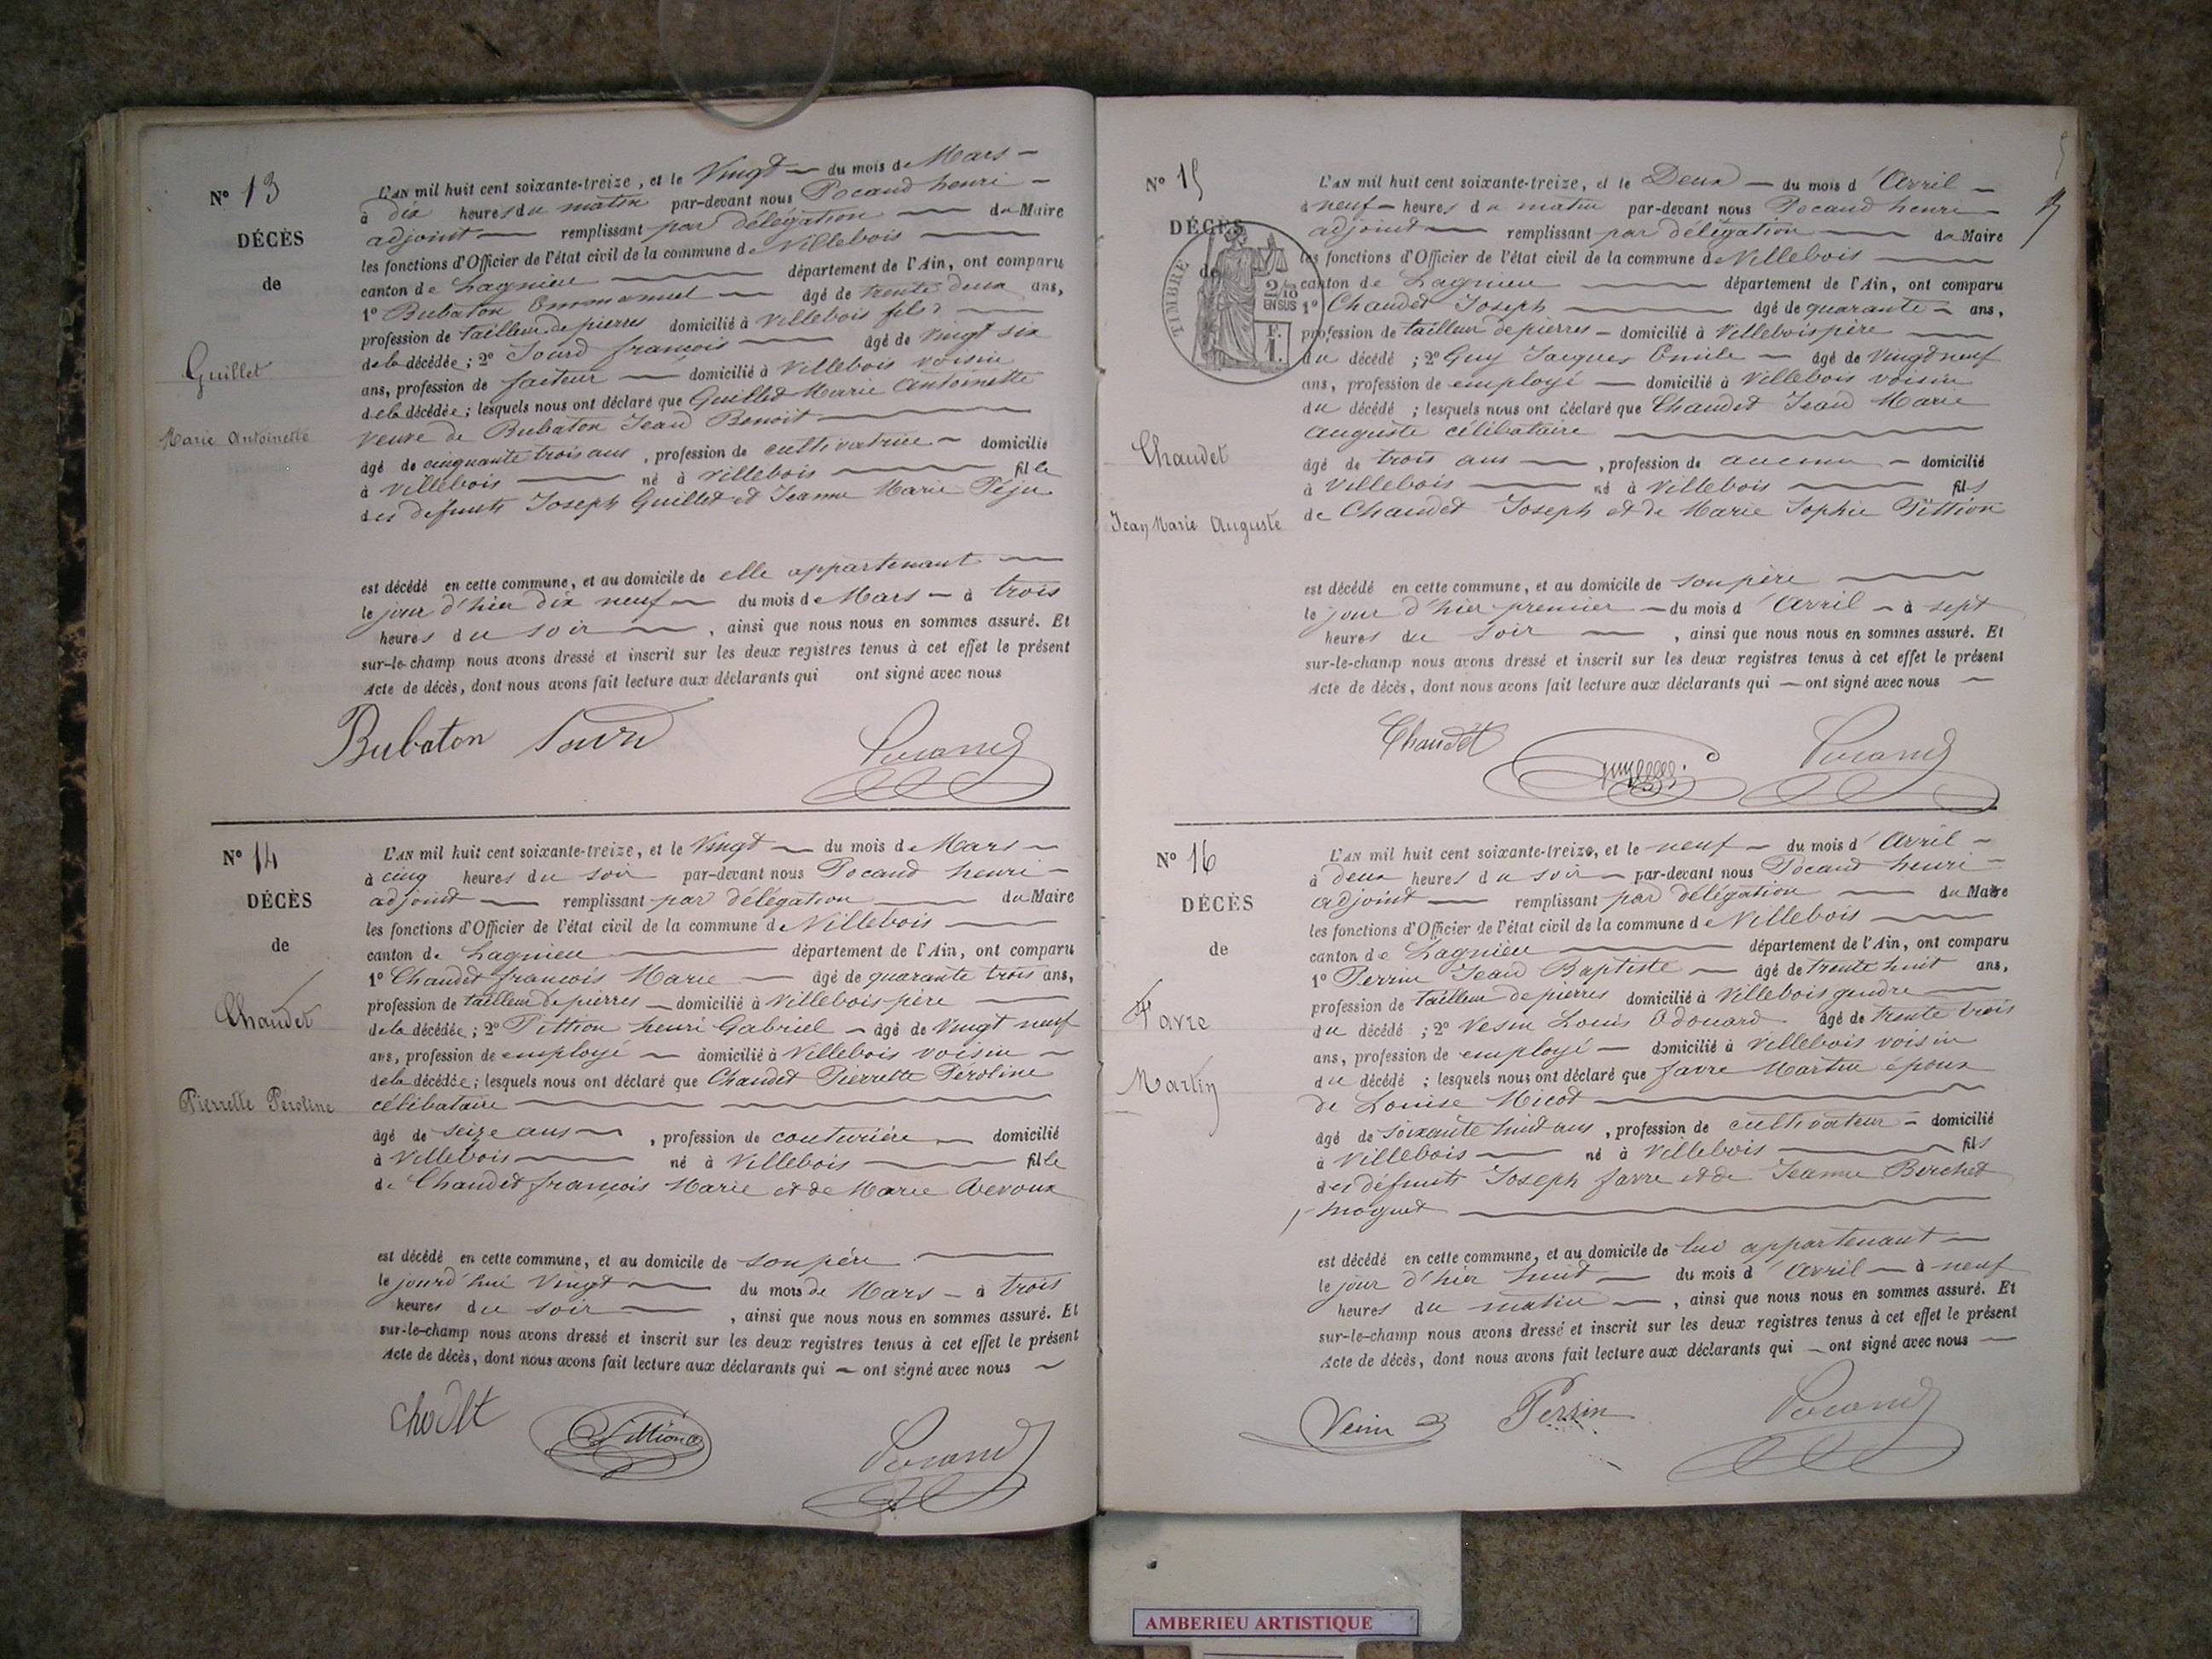 N° 13
DÉCÈS
de
Guillet
Marie Antoinette
L'AN mil huit cent soixante-treize, et le Vingt du mois de Mars
à dix heures du matin par-devant nous Pocand henri
adjoint remplissant par délégation du Maire
les fonctions d'Officier de l'état civil de la commune de Villebois
canton de Lagnieu département de l'Ain, ont comparu
1° Bubaton Emmanuel âgé de trente deux ans,
profession de tailleur de pierres domicilié à Villebois fils
de la décédée; 2° Sourd françois âgé de Vingt six
ans, profession de facteur domicilié à Villebois voisin
de la décédée; lesquels nous ont déclaré que Guillet Marie Antoinette
veuve de Bubaton Jean Benoit
âgé de cinquante trois ans, profession de cultivatrice domicilié
à Villebois né à Villebois fille
des défunts Joseph Guillet et Jeanne Marie Péju
est décédé en cette commune, et au domicile de elle appartenant
le jour d'hier dix neuf du mois de Mars à trois
heures du soir, ainsi que nous nous en sommes assuré. Et
sur-le-champ nous avons dressé et inscrit sur les deux registres tenus à cet effet le présent
Acte de décès, dont nous avons fait lecture aux déclarants qui ont signé avec nous
Bubaton Sourd Pocand
N° 14
DÉCÈS
de
Chaudet
Pierrette Péroline
L'AN mil huit cent soixante-treize, et le Vingt du mois de Mars
à cinq heures du soir par-devant nous Pocand henri
adjoint remplissant par délégation du Maire
les fonctions d'Officier de l'état civil de la commune de Villebois
canton de Lagnieu département de l'Ain, ont comparu
1° Chaudet françois Marie âgé de quarante trois ans,
profession de tailleur de pierres domicilié à Villebois père
de la décédée; 2° Pittion henri Gabriel âgé de Vingt neuf
ans, profession de employé domicilié à Villebois voisin
de la décédée; lesquels nous ont déclaré que Chaudet Pierrette Péroline
célibataire
âgé de seize ans, profession de couturière domicilié
à Villebois né à Villebois fille
de Chaudet françois Marie et de Marie Averoux
est décédé en cette commune, et au domicile de son père
le jourd'hui Vingt du mois de Mars à trois
heures du soir, ainsi que nous nous en sommes assuré. Et
sur-le-champ nous avons dressé et inscrit sur les deux registres tenus à cet effet le présent
Acte de décès, dont nous avons fait lecture aux déclarants qui ont signé avec nous
Pittion Pocand
N° 15
DÉCÈS
de
TIMBRE
2/10
EN SUS
F.
1.
Chaudet
Jean Marie Auguste
L'AN mil huit cent soixante-treize, et le Deux du mois d'Avril
à neuf heures du matin par-devant nous Pocand henri
adjoint remplissant par délégation du Maire
les fonctions d'Officier de l'état civil de la commune de Villebois
canton de Lagnieu département de l'Ain, ont comparu
1° Chaudet Joseph âgé de quarante ans,
profession de tailleur de pierres domicilié à Villebois père
du décédé; 2° Guy Jacques Emile âgé de Vingt neuf
ans, profession de employé domicilié à Villebois voisin
du décédé; lesquels nous ont déclaré que Chaudet Jean Marie
Auguste célibataire
âgé de trois ans, profession de aucune domicilié
à Villebois né à Villebois fils
de Chaudet Joseph et de Marie Sophie Pittion
est décédé en cette commune, et au domicile de son père
le jour d'hier premier du mois d'Avril à sept
heures du soir, ainsi que nous nous en sommes assuré. Et
sur-le-champ nous avons dressé et inscrit sur les deux registres tenus à cet effet le présent
Acte de décès, dont nous avons fait lecture aux déclarants qui ont signé avec nous
Chaudet Pocand
N° 16
DÉCÈS
de
Favre
Martin
L'AN mil huit cent soixante-treize, et le neuf du mois d'Avril
à deux heures du soir par-devant nous Pocand henri
adjoint remplissant par délégation du Maire
les fonctions d'Officier de l'état civil de la commune de Villebois
canton de Lagnieu département de l'Ain, ont comparu
1° Perrin Jean Baptiste âgé de trente huit ans,
profession de tailleur de pierres domicilié à Villebois gendre
du décédé; 2° Vesin Louis Edouard âgé de trente trois
ans, profession de employé domicilié à Villebois voisin
du décédé; lesquels nous ont déclaré que favre Martin époux
de Louise Micot
âgé de soixante huit ans, profession de cultivateur domicilié
à Villebois né à Villebois fils
des défunts Joseph favre et de Jeanne Berchet
moquet
est décédé en cette commune, et au domicile de lui appartenant
le jour d'hier huit du mois d'Avril à neuf
heures du matin, ainsi que nous nous en sommes assuré. Et
sur-le-champ nous avons dressé et inscrit sur les deux registres tenus à cet effet le présent
Acte de décès, dont nous avons fait lecture aux déclarants qui ont signé avec nous
Vesin Perrin Pocand
AMBERIEU ARTISTIQUE